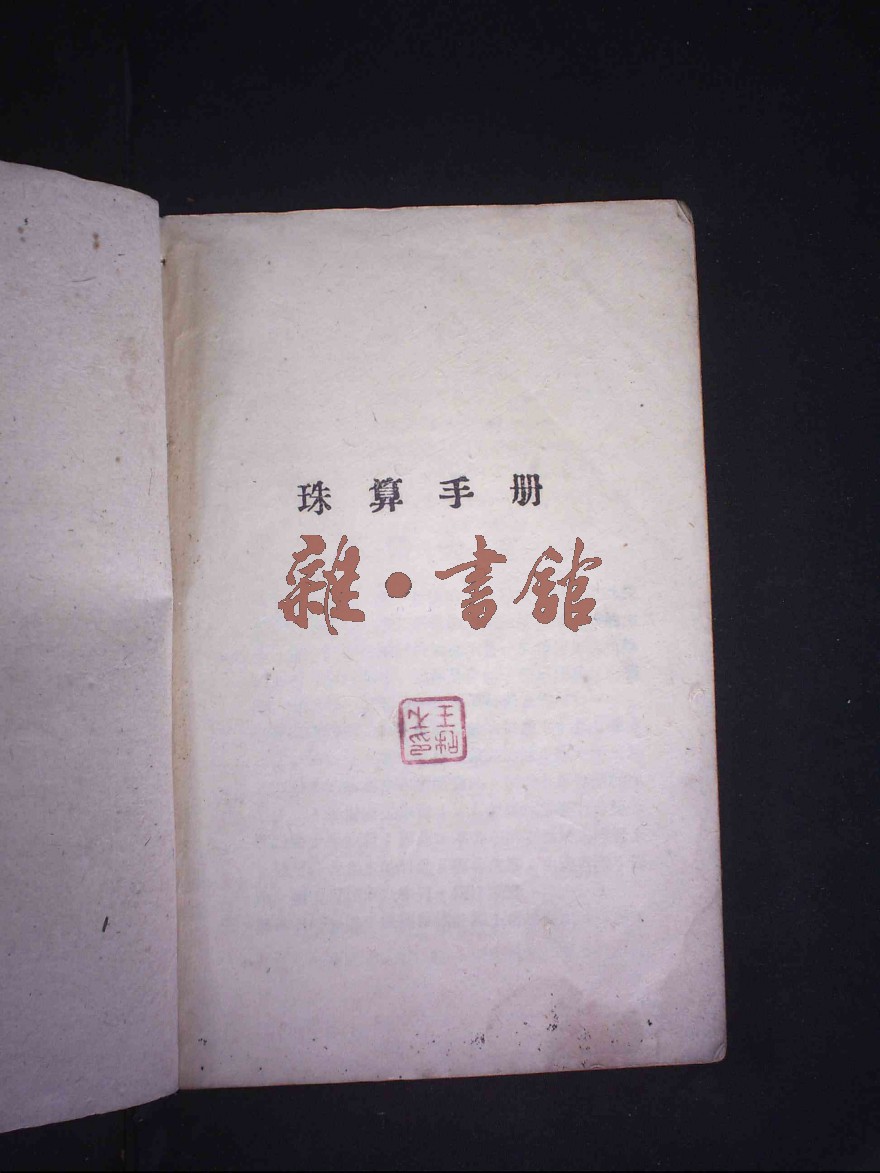 珠算手册
雜·書館